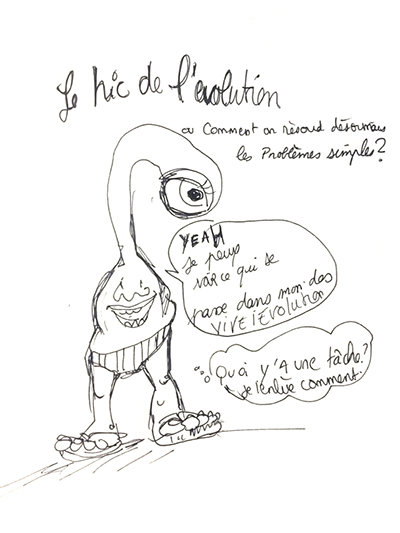 Le hic de l'évolution
ou Comment on résoud désormais
les Problèmes simples?
YEAH
Je peux
voir ce qui se
passe dans mon dos
VIVE l'EVolution
Quoi y'A une tâche?
Je l'enlève comment.